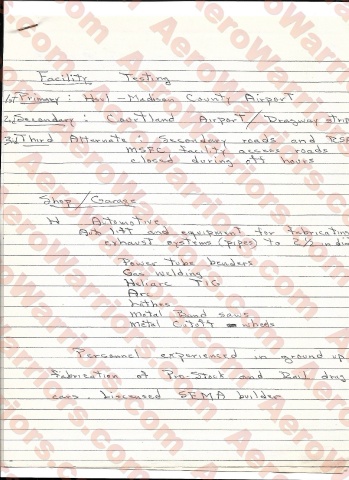 Facility Testing
1st Primary: Hunt-Madison County Airport
2nd Secondary: Courtland Airport/Dragway strip
3rd Third Alternate: Secondary roads and RSA
MSFC facility access roads
closed during off hours
Shop/Garage
Automotive
lift and equipment for fabricating
exhaust systems (pipes) to 2½ in dia
Power tube benders
Gas welding
Heliarc TIG
Arc
Lathes
Metal Band saws
Metal Cutoff wheels
Personnel experienced in ground up
fabrication of Pro-Stock and Rail drag
cars. Liscensed SEMA builder
AeroWarriors.com